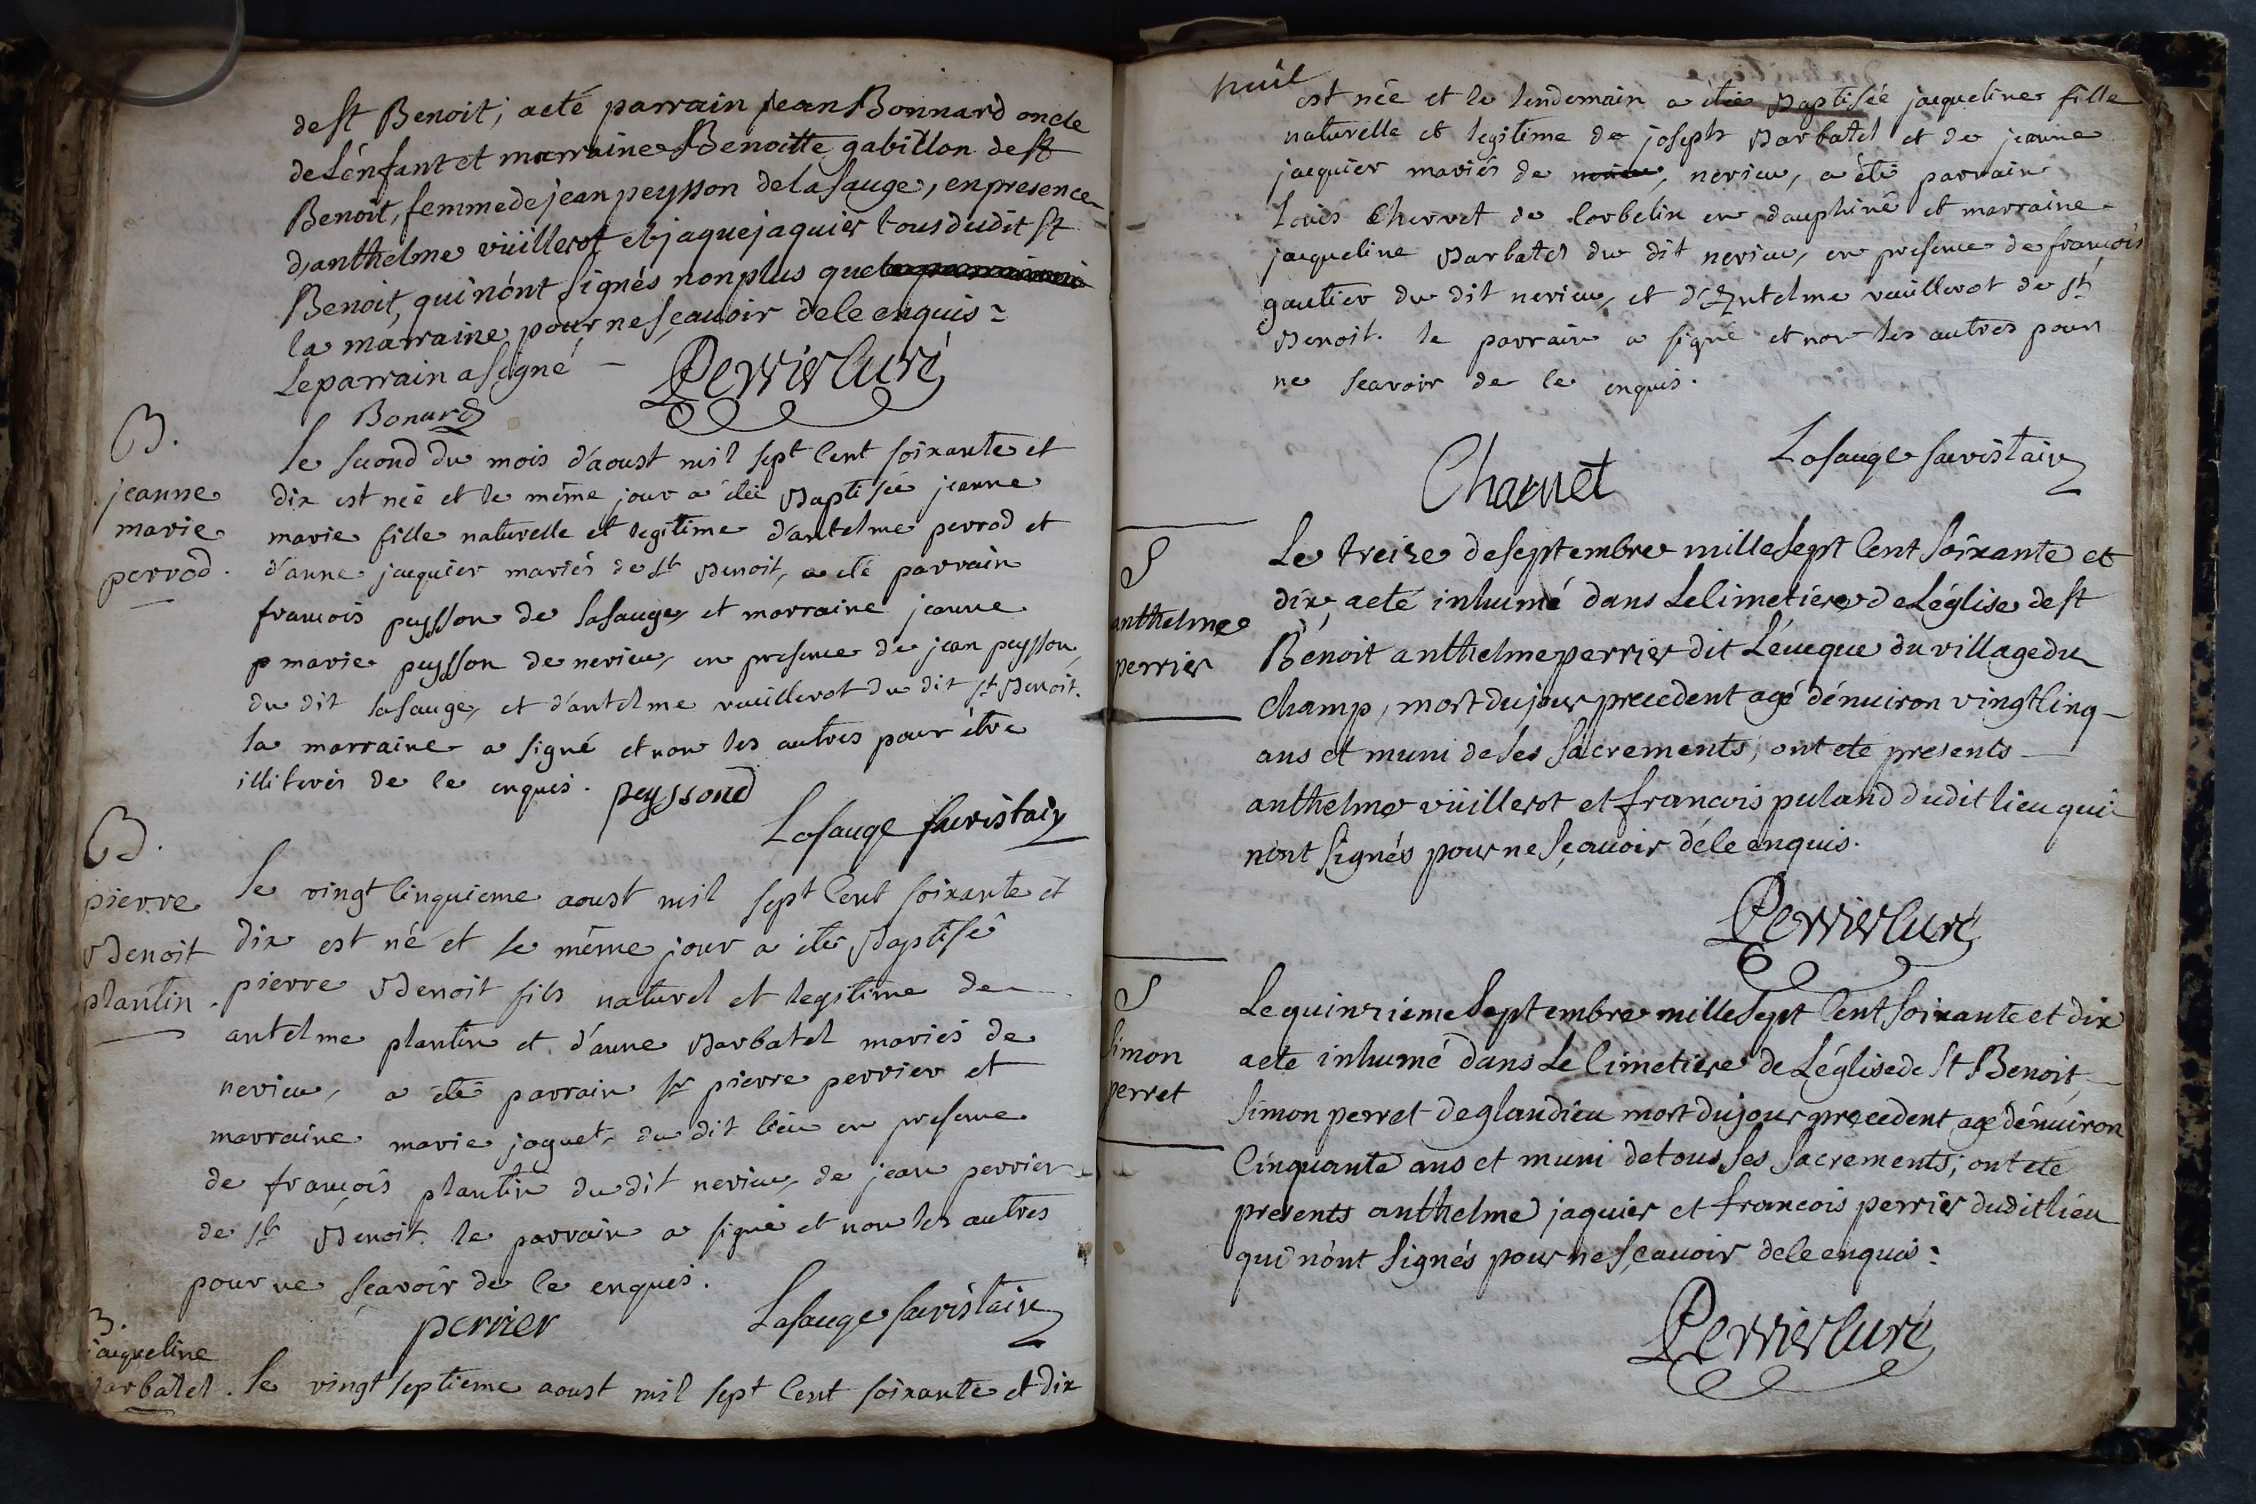 de st Benoit; aeté parrain jean Bonnard oncle
de L'énfant et marraine Benoitte gabillon de st
Benoit, femme de jean peysson de la sauge, en presence
d'anthelme vüillerot et jaque jaquier tous dudit st
Benoit, qui nónt signés non plus que
la marraine pour ne sçauoir de le enquis :
Le parrain a signé — Perrier Curé
Bonard
B.
jeanne
marie
perrod.
le second du mois d'aoust mil sept cent soixante et
dix est neé et le même jour a étée Baptisée jeanne
marie fille naturelle et legitime d'antelme perrod et
d'anne jacquier mariés de st Benoit, a eté parrain
francois peysson de lasauge, et marraine jeanne
p marie peysson de nerieu, en presence de jean peysson
du dit lasauge, et d'antelme vuillerot du dit st Benoit.
la marraine a signé et non les autres pour être
illiterés de ce enquis. peyssond
Lasauge sacristain
B.
pierre
Benoit
plantin.
le vingt cinquieme aoust mil sept cent soixante et
dix est né et le même jour a été Baptisé
pierre Benoit fils naturel et legitime de
antelme plantin et d'anne Barbatel mariés de
nerieu, a été parrain sr pierre perrier et
marraine marie joguet, du dit lieu en presence
de francois plantin du dit nerieu, de jean perrier
de st Benoit. le parrain a signé et non les autres
pour ne sçavoir de ce enquis.
perrier Lasauge sacristain
B.
jacqueline
Barbatel. le vingt septieme aoust mil sept cent soixante et dix
est née et le lendemain a étée Baptisée jacqueline fille
naturelle et legitime de joseph Barbatel et de jeanne
jacquier mariés de nerieu, a été parrain
louis Charvet de Corbelin en dauphiné et marraine
jacqueline Barbatel du dit nerieu, en presence de francois
gautier du dit nerieu, et d'Antelme vuillerot de st
Benoit. le parrain a signé et non les autres pour
ne scavoir de ce enquis.
Lasauge sacristain
Charuet
S
anthelme
perrier
Le treize de septembre mille sept cent soixante et
dix, aeté inhumé dans Le cimetiére de L'église de st
Bénoit anthelme perrier dit Léueque du village du
champ, mort du jour precedent agé dénuiron vingt cinq
ans et muni de ses sacrements; ont eté presents
anthelme vüillerot et francois puland dudit lieu qui
nónt signés pour ne sçauoir dé le enquis.
Perrier Curé
S
simon
perret
Le quinzième septembre mille sept cent soixante et dix
aete inhumé dans Le cimetiere de L'église de st Benoit
simon perret de glandieu mort du jour precedent agé dénuiron
Cinquante ans et muni de tous ses sacrements; ont eté
presents anthelme jaquier et francois perrier dudit lieu
qui nónt signés pour ne sçauoir de le enquis :
Perrier Curé